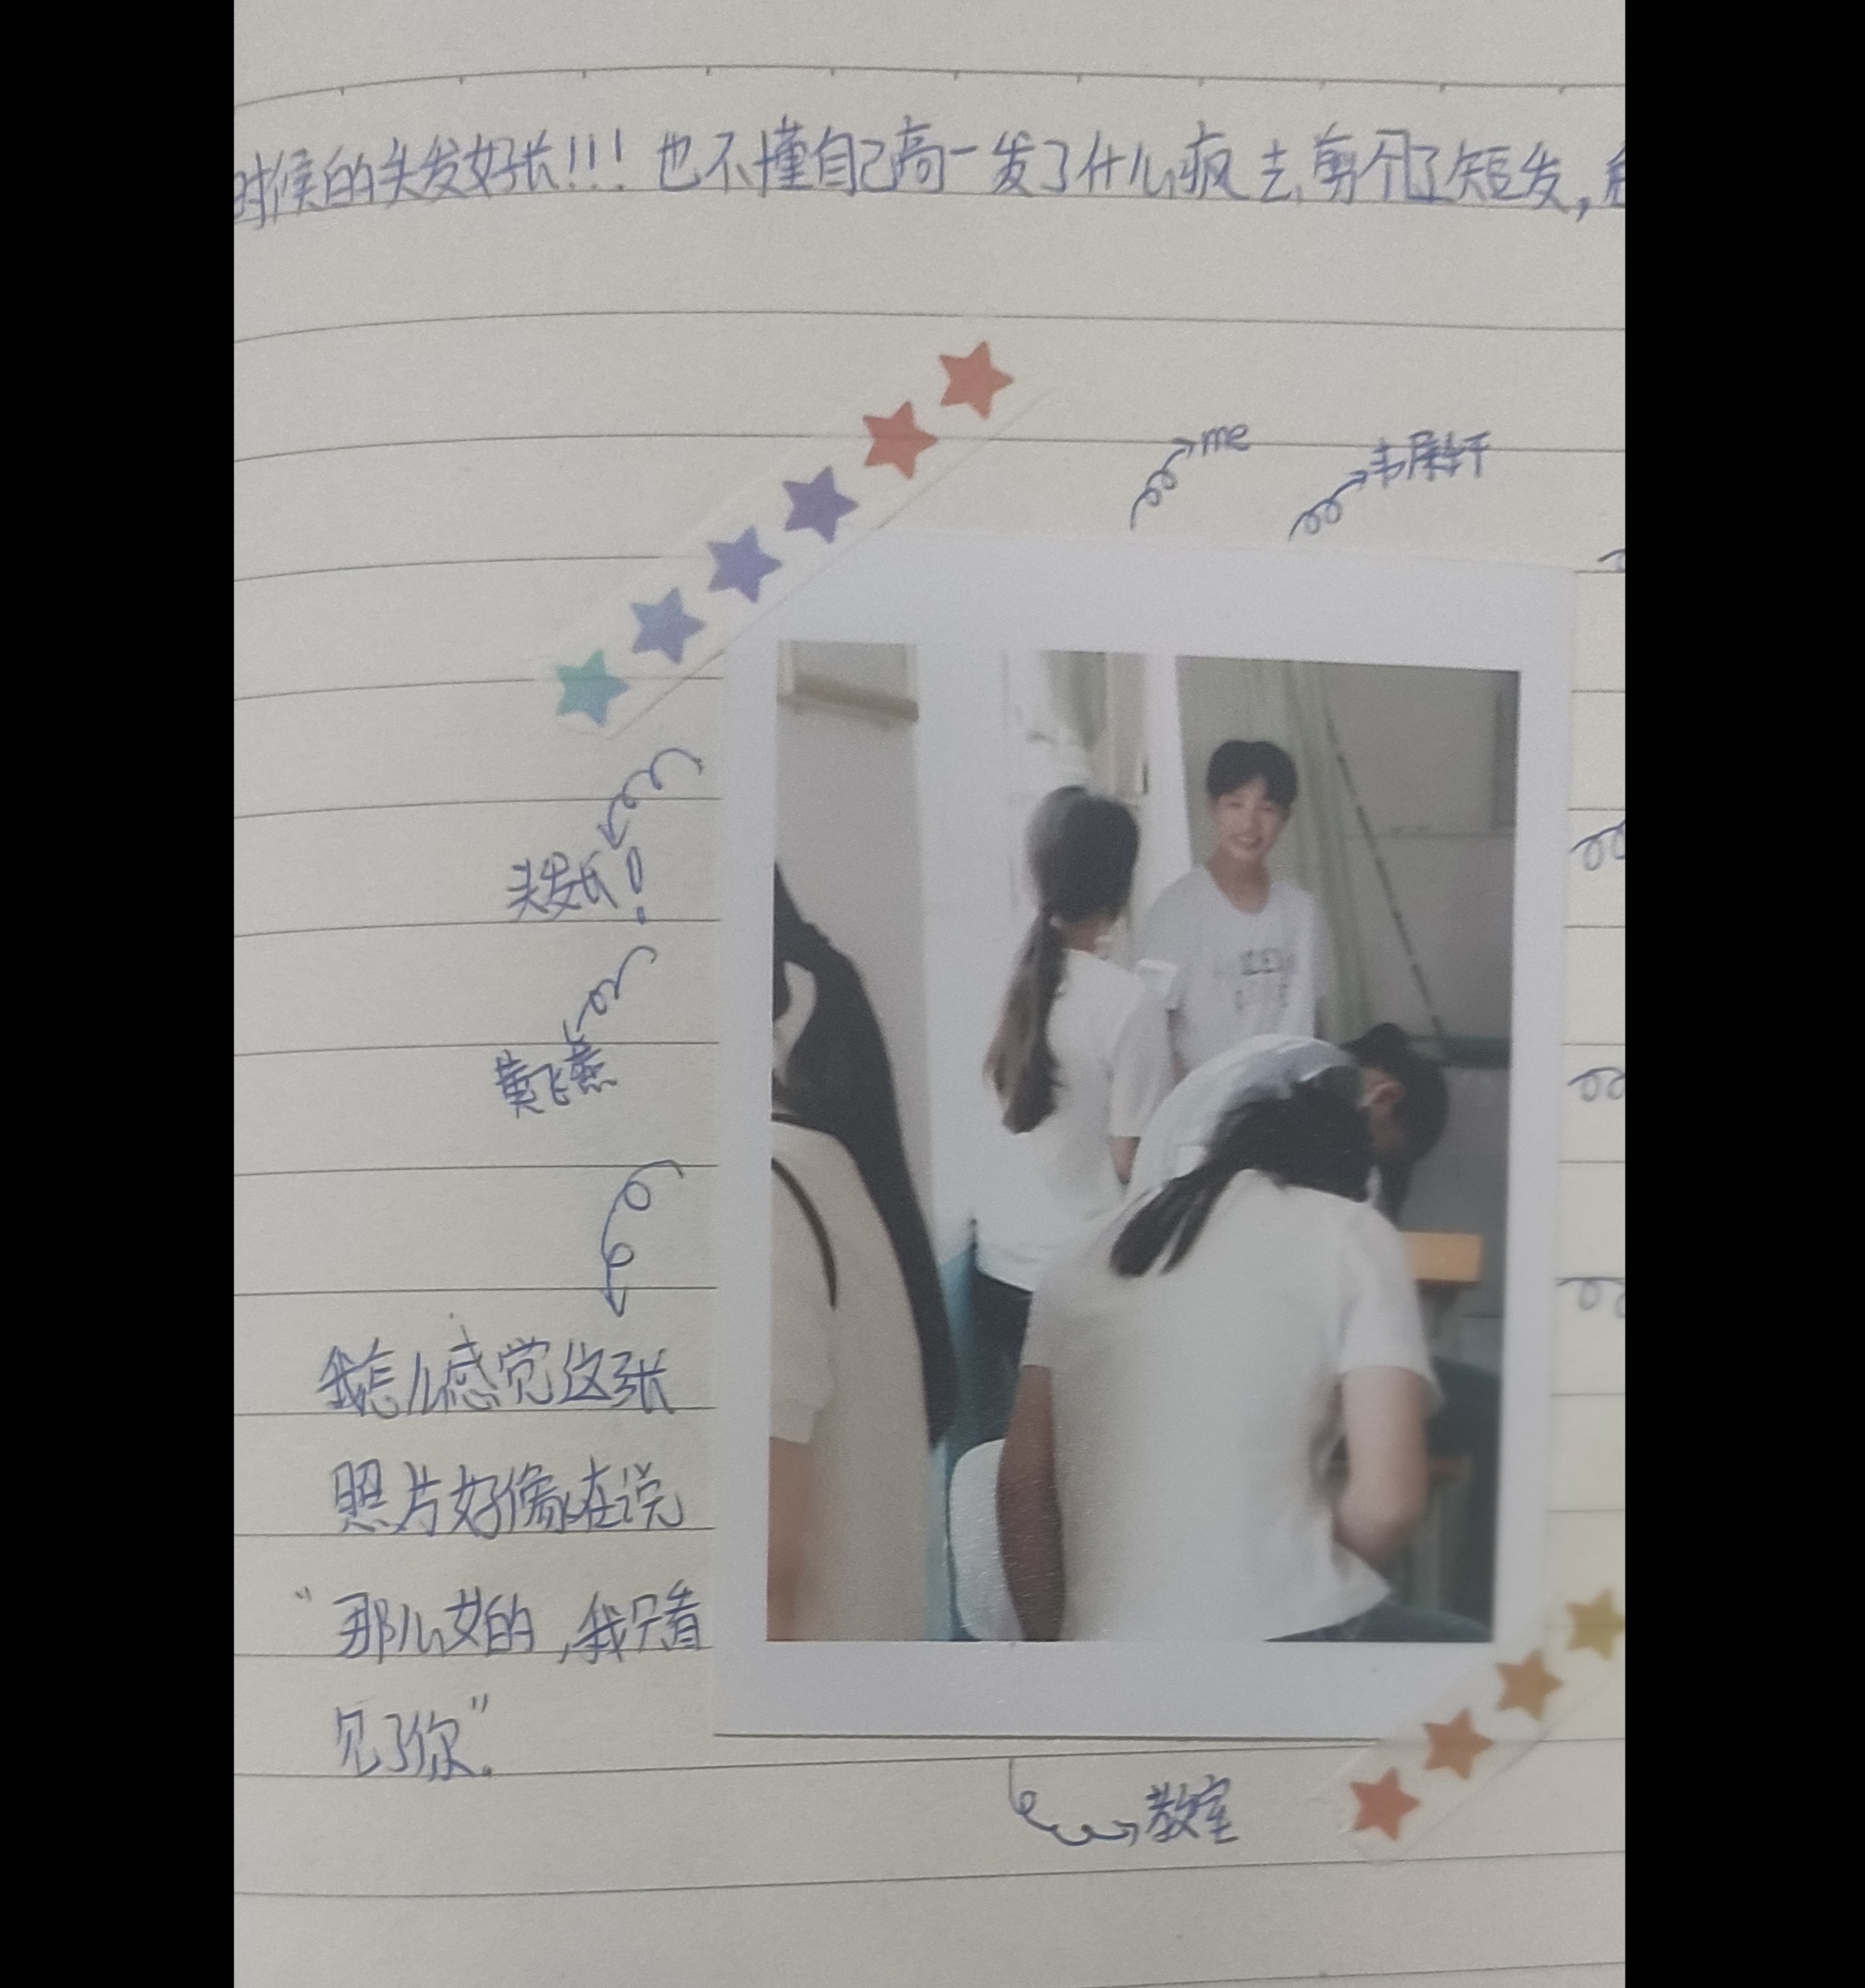 时候的头发好长!!! 也不懂自己高一发了什么疯去剪了短发,
me
头发长!
黄飞燕
我怎么感觉这张
照片好像在说
"那么女的,我只看
见了你"。
教室